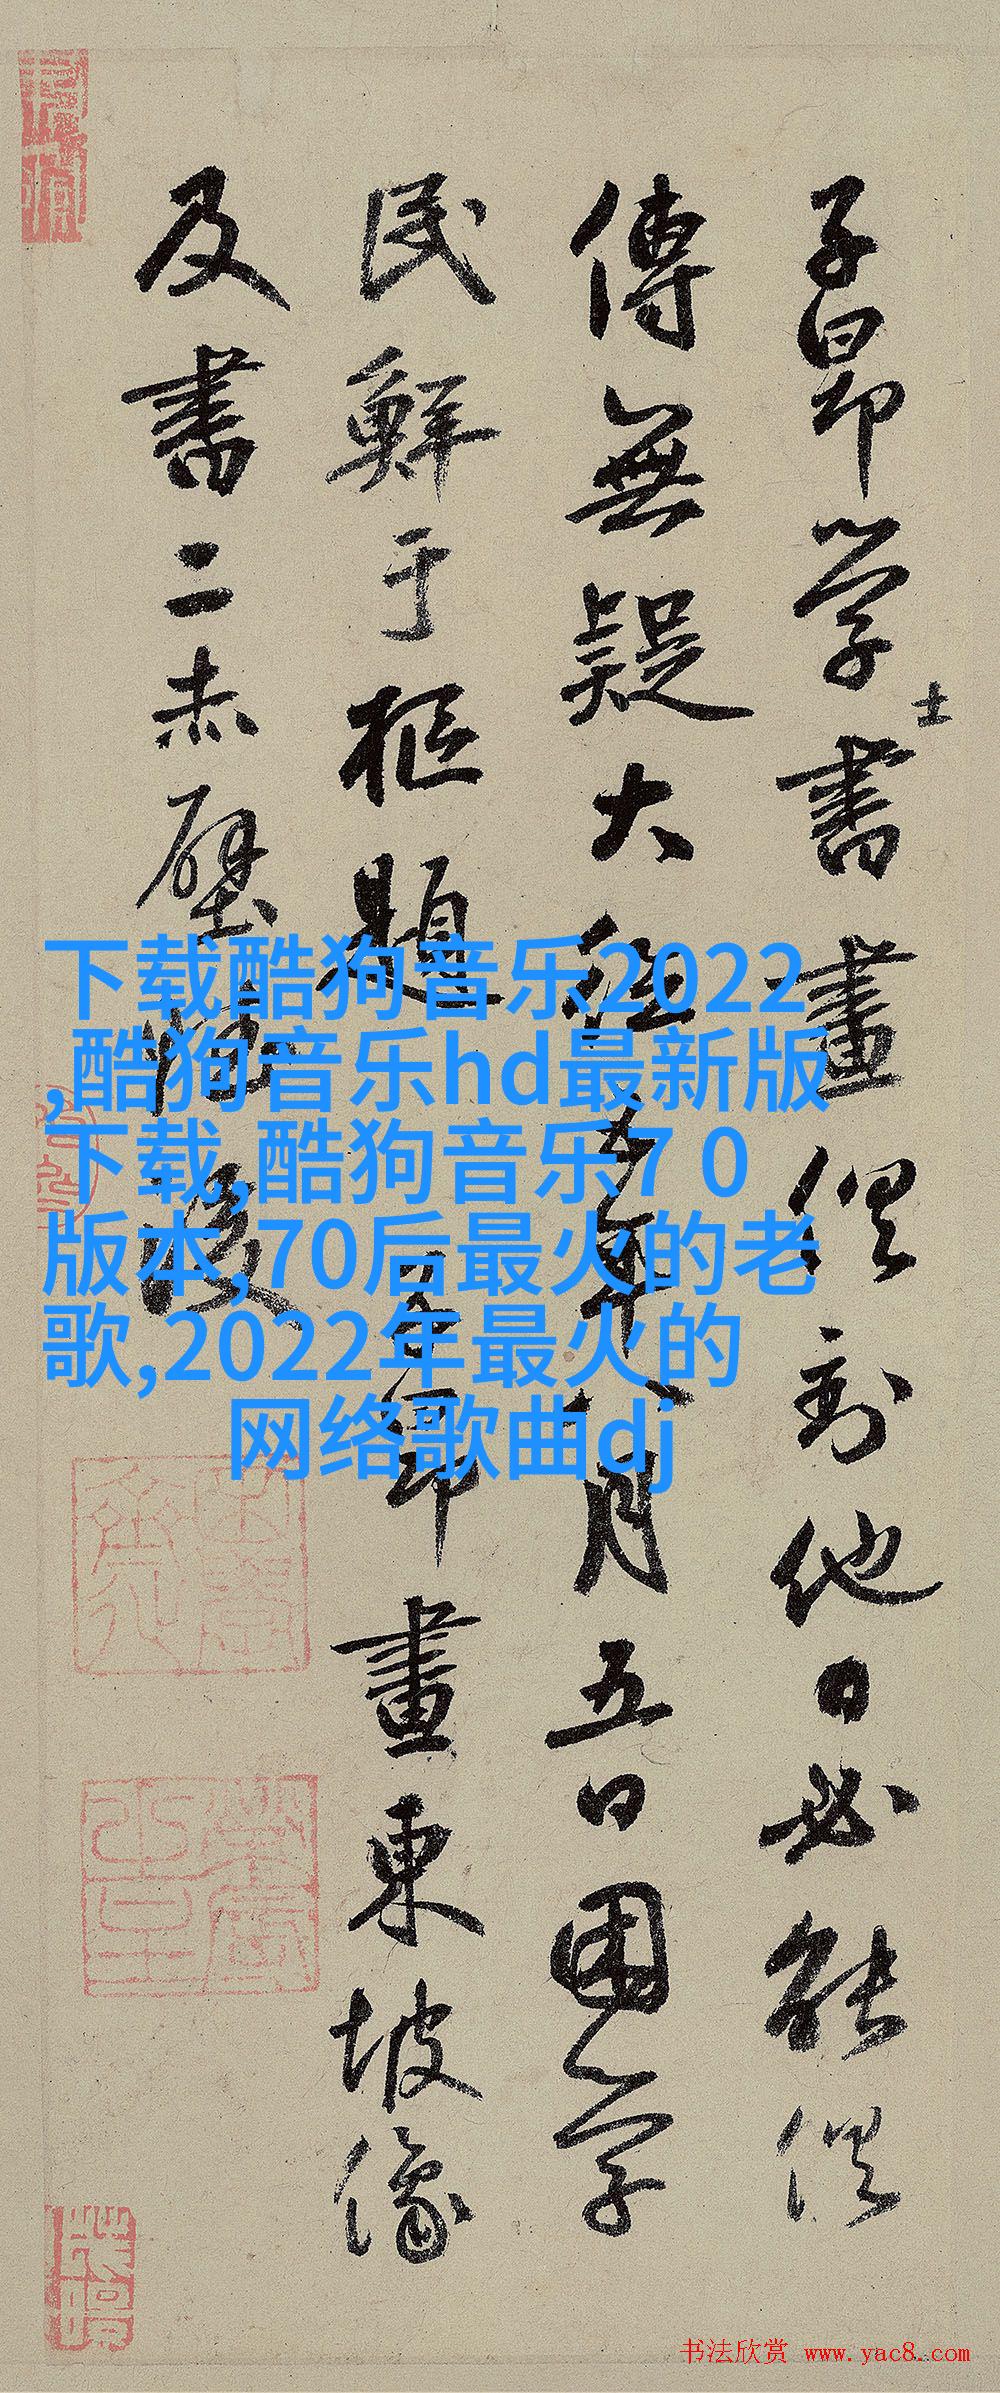 子昂學士書畫俱到他日必能俱
傳無疑大德五年八月五日困學
民鮮于樞題子昂畫東坡像
及書二赤壁賦後
下载酷狗音乐2022
,酷狗音乐hd最新版
下载,酷狗音乐7 0
版本,70后最火的老
歌,2022年最火的
网络歌曲dj
书法欣赏 www.yac8.com